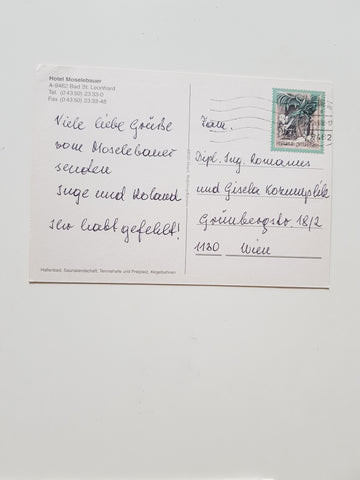 Hotel Moselebauer
A-9462 Bad St. Leonhard
Tel. (0 43 50) 23 33-0
Fax (0 43 50) 23 33-48
Viele liebe Grüße
vom Moselebauer
senden
Inge und Roland
Ihr habt gefehlt!
Hallenbad, Saunalandschaft, Tennishalle und Freiplatz, Kegelbahnen
Fam.
Dipl. Ing. Romanus
und Gisela
Grünbergstr. 18/2
1130 Wien